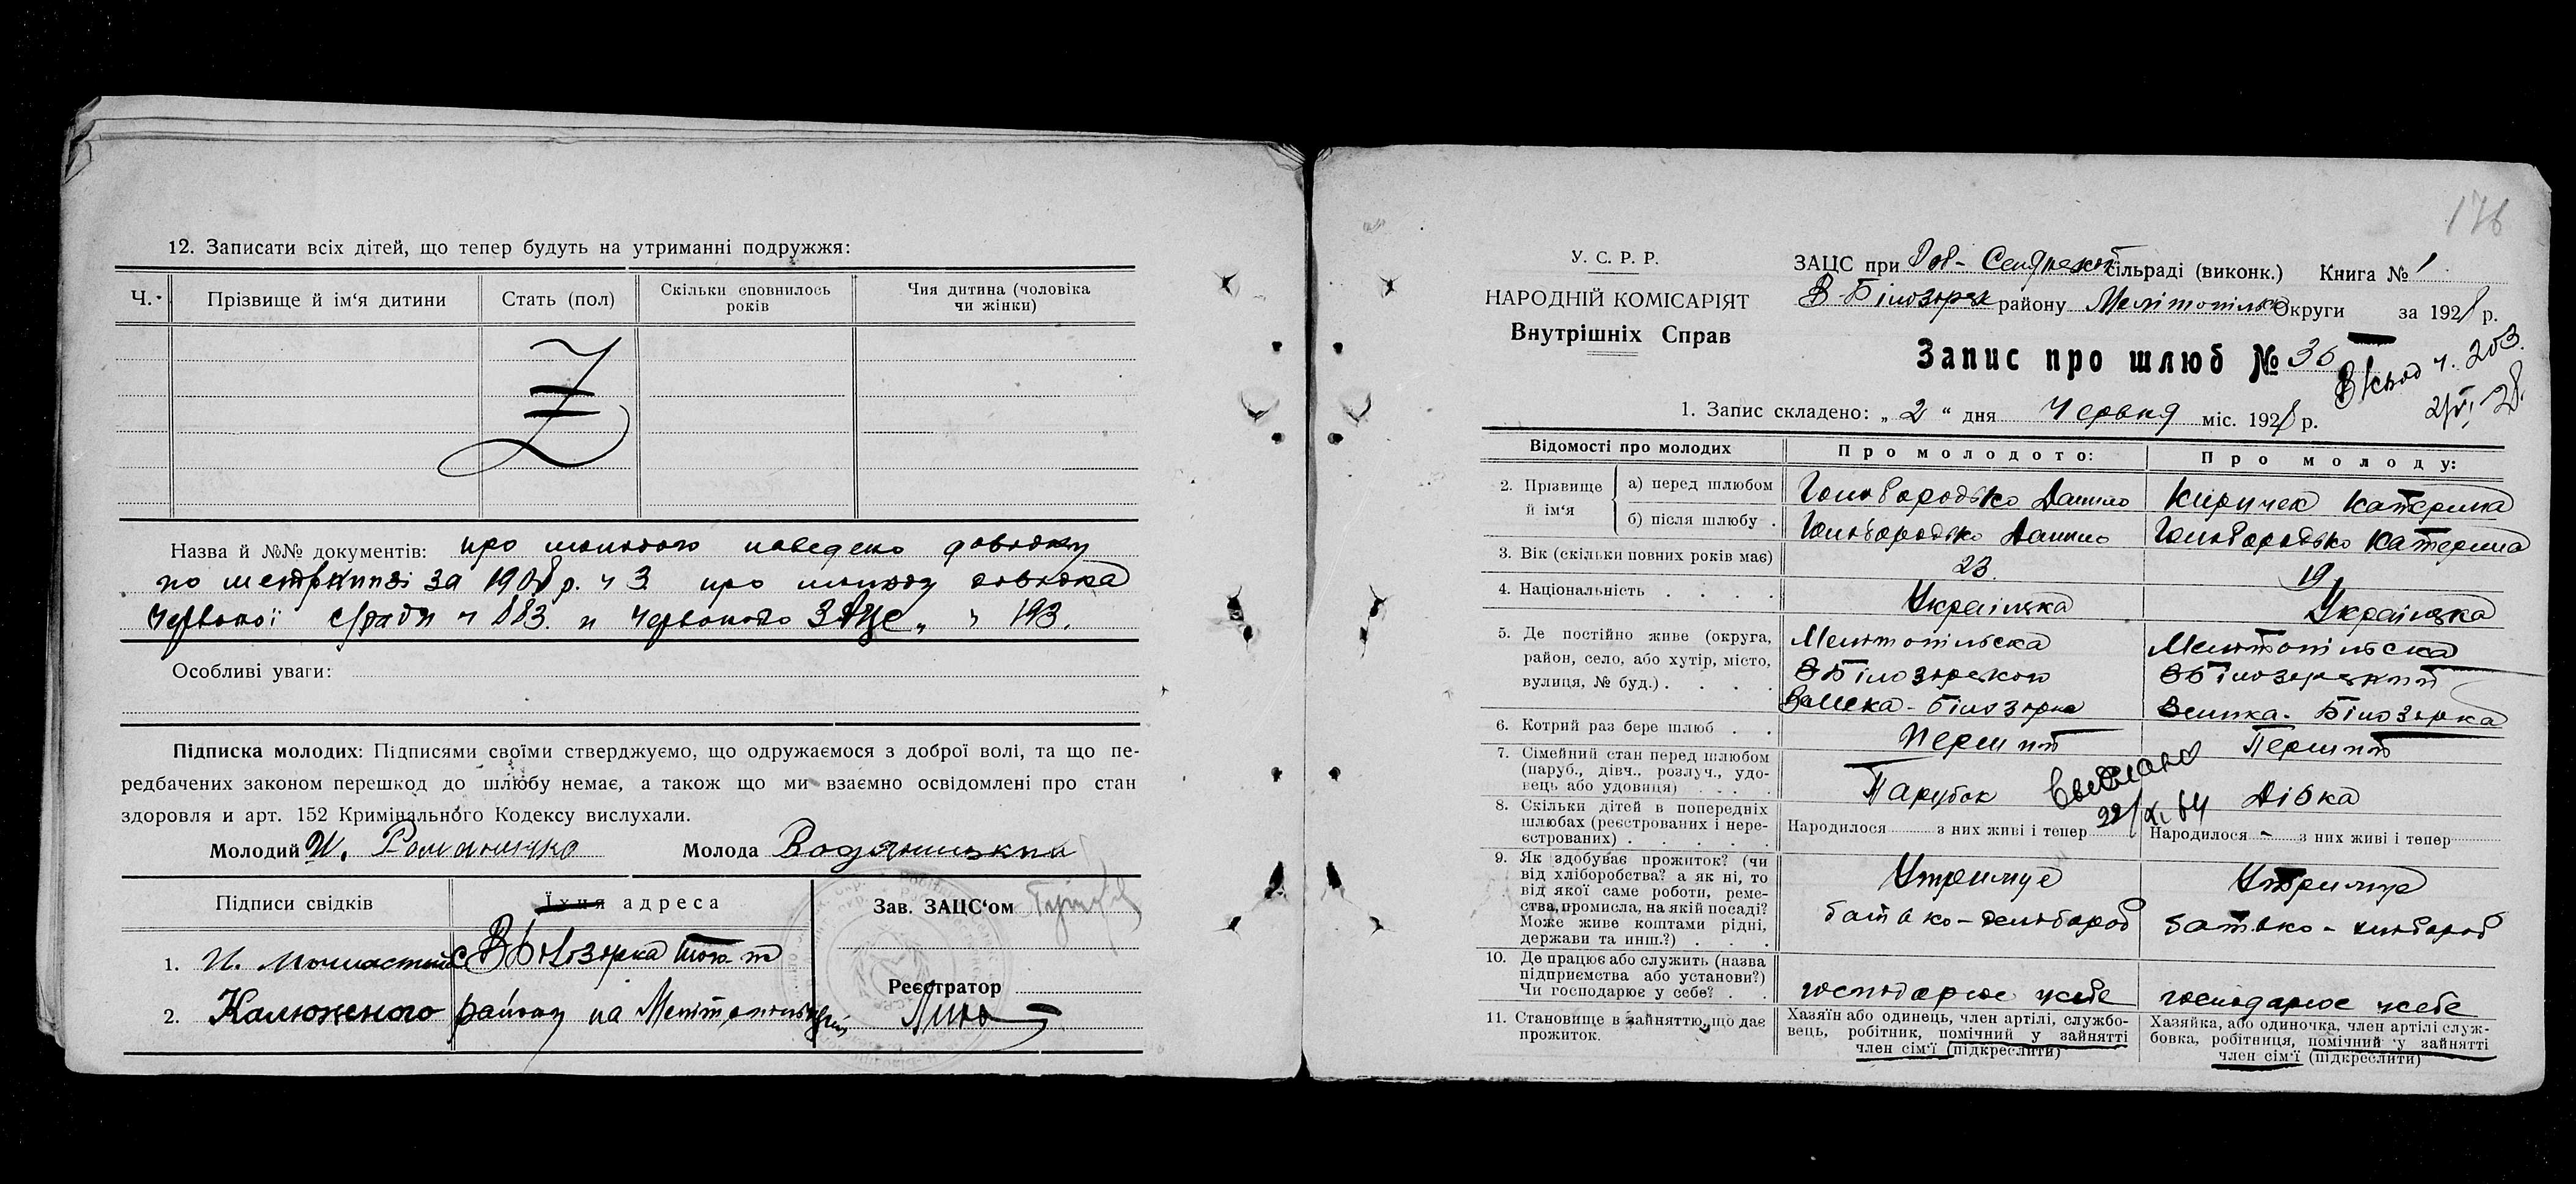 12. Записати всіх дітей, що тепер будуть на утриманні подружжя:
Ч. Прізвище й ім‘я дитини Стать (пол) Скільки сповнилось років Чия дитина (чоловіка чи жінки)
Z
Назва й №№ документів: про молодого наведено довідку
по метриці за 1905 р. ч 3 про молоду довідка
Червоної с/ради ч 883. и Червоного ЗАЦС 193.
Особливі уваги:
Підписка молодих: Підписями своїми стверджуємо, що одружаємося з доброї волі, та що пе-
редбачених законом перешкод до шлюбу немає, а також що ми взаємно освідомлені про стан
здоровля и арт. 152 Кримінального Кодексу вислухали.
Молодий И. Романенко Молода
Підписи свідків Їхня адреса Зав. ЗАЦС‘ом
1. И. В Білозірка
2. Калюжного району на Мелітопільщині
Реєстратор
176
У. С. Р. Р.
НАРОДНІЙ КОМІСАРІЯТ
Внутрішніх Справ
ЗАЦС при сільраді (виконк.) Книга № 1
В-Білозірськ району Мелітопільськ Округи за 1928 р.
Запис про шлюб № 36
Вкнод ч. 203.
2/VI 28.
1. Запис складено: „ 2 “ дня Червня міс. 1928 р.
Відомості про молодих Про молодого: Про молоду:
2. Прізвище й ім‘я
а) перед шлюбом Голобородько Данило Киричек Катерина
б) після шлюбу Голобородько Данило Голобородько Катерина
3. Вік (скільки повних років має) 23. 19
4. Національність Українська Українська
5. Де постійно живе (округа, район, село, або хутір, місто, вулиця, № буд.)
Мелітопільска Мелітопільска
В Білозірского В Білозірский
Велика-Білозірка Велика-Білозірка
6. Котрий раз бере шлюб Перший Перший
7. Сімейний стан перед шлюбом (паруб., дівч., розлуч., удо-
вець або удовиця) Парубок Дівка
22/XI 64
8. Скільки дітей в попередніх шлюбах (реєстрованих і нере-
єстрованих) Народилося з них живі і тепер Народилося - з них живі і тепер
9. Як здобуває прожиток? (чи від хліборобства? а як ні, то від якої саме роботи, реме-
ства, промисла, на якій посаді? Може живе коштами рідні, держави та инш.?)
Утримує Утримує
батько-хлібороб батько-хлібороб
10. Де працює або служить (назва підприємства або установи?)
Чи господарює у себе? господарює усебе господарює усебе
11. Становище в зайняттю, що дає прожиток.
Хазяїн або одинець, член артілі, службо-
вець, робітник, помічний у зайнятті
член сім‘ї (підкреслити)
Хазяйка, або одиночка, член артілі служ-
бовка, робітниця, помічний у зайнятті
член сім‘ї (підкреслити)